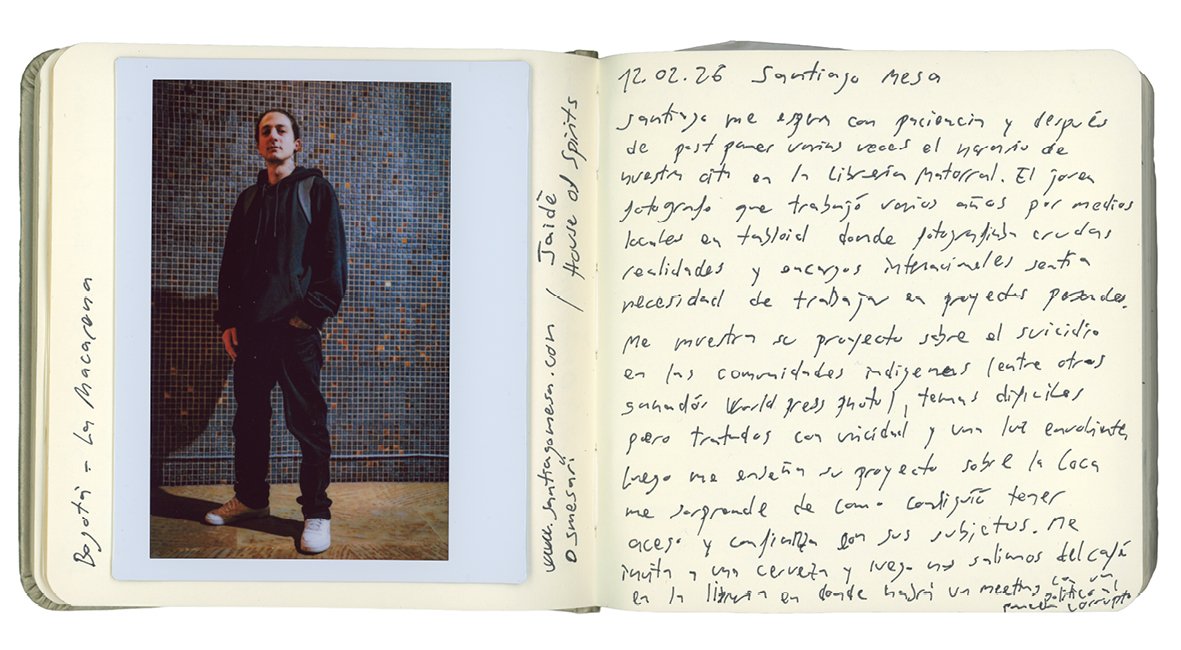 Bogotá - La Macarena
www.santiagomesa.com / Jaidë
@smesari / House of Spirits
12.02.26 Santiago Mesa
Santiago me espera con paciencia y después
de postponer varias veces el horario de
nuestra cita en la Librería Matorral. El joven
fotografo que trabajó varios años por medios
locales en tabloid donde fotografiaba crudas
realidades y encargos internacionales sentia
necesidad de trabajar en proyectos personales.
Me muestra su proyecto sobre el suicidio
en las comunidades indigenas (entre otros
ganador World press photo), temas dificiles
pero tratados con y una luz envolvente,
luego me enseña su proyecto sobre la Coca
me sorprende de como consiguió tener
acceso y confianza con sus subjetos. Me
invita a una cerveza y luego nos salimos del café
en la libreria en donde habrá un meeting con un
politico al
corrupto